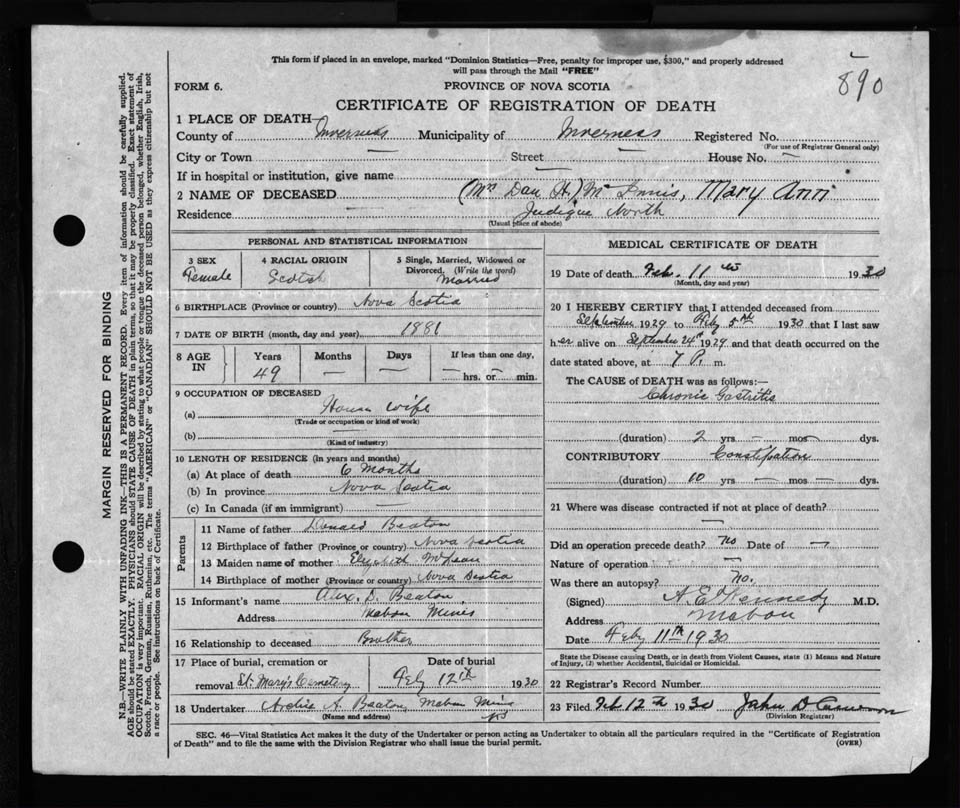 This form if placed in an envelope, marked "Dominion Statistics—Free, penalty for improper use, $300," and properly addressed
will pass through the Mail "FREE"
890
FORM 6.
PROVINCE OF NOVA SCOTIA
CERTIFICATE OF REGISTRATION OF DEATH
1 PLACE OF DEATH
County of Inverness Municipality of Inverness Registered No.
(For use of Registrar General only)
City or Town — Street — House No. —
If in hospital or institution, give name —
2 NAME OF DECEASED (Mrs Dan H.) McInnis, Mary Ann
Residence Judique North
(Usual place of abode)
PERSONAL AND STATISTICAL INFORMATION
3 SEX
Female
4 RACIAL ORIGIN
Scotish
5 Single, Married, Widowed or
Divorced. (Write the word)
Married
6 BIRTHPLACE (Province or country) Nova Scotia
7 DATE OF BIRTH (month, day and year) 1881
8 AGE IN
Years
49
Months
—
Days
—
If less than one day,
hrs. or — min.
9 OCCUPATION OF DECEASED
(a) House wife
(Trade or occupation or kind of work)
(b) —
(Kind of industry)
10 LENGTH OF RESIDENCE (in years and months)
(a) At place of death 6 Months
(b) In province Nova Scotia
(c) In Canada (if an immigrant) —
Parents
11 Name of father Donald Beaton
12 Birthplace of father (Province or country) Nova Scotia
13 Maiden name of mother McLean
14 Birthplace of mother (Province or country) Nova Scotia
15 Informant's name Alex. D. Beaton
Address Mabou Mines
16 Relationship to deceased Brother
17 Place of burial, cremation or
removal St. Mary's Cemetery
Date of burial
Feby 12th 1930
18 Undertaker Archie A. Beaton, Mabou Mines
(Name and address) NS
MEDICAL CERTIFICATE OF DEATH
19 Date of death Feb. 11th 1930
(Month, day and year)
20 I HEREBY CERTIFY that I attended deceased from
September 1929 to Feby 5th 1930 that I last saw
her alive on September 24th 1929 and that death occurred on the
date stated above, at 7 P. m.
The CAUSE of DEATH was as follows:—
Chronic Gastritis
(duration) 2 yrs — mos — dys.
CONTRIBUTORY Constipation
(duration) 10 yrs — mos — dys.
21 Where was disease contracted if not at place of death?
—
Did an operation precede death? No Date of —
Nature of operation —
Was there an autopsy? No.
(Signed) A. E. Kennedy M.D.
Address Mabou
Date Feby 11th 1930
State the Disease causing Death, or in death from Violent Causes, state (1) Means and Nature
of Injury, (2) whether Accidental, Suicidal or Homicidal.
22 Registrar's Record Number
23 Filed Feb 12th 1930 John D Cameron
(Division Registrar)
SEC. 46—Vital Statistics Act makes it the duty of the Undertaker or person acting as Undertaker to obtain all the particulars required in the "Certificate of Registration
of Death" and to file the same with the Division Registrar who shall issue the burial permit. (OVER)
MARGIN RESERVED FOR BINDING
N.B.—WRITE PLAINLY WITH UNFADING INK—THIS IS A PERMANENT RECORD. Every item of information should be carefully supplied.
AGE should be stated EXACTLY. PHYSICIANS should STATE CAUSE OF DEATH in plain terms, so that it may be properly classified. Exact statement of
OCCUPATION is very important. RACIAL ORIGIN will be described by stating to what people or tongue the deceased person belonged, whether English, Irish,
Scotch, French, German, Russian, Ruthenian, etc. The terms "AMERICAN" or "CANADIAN" SHOULD NOT BE USED as they express citizenship but not
a race or people. See instructions on back of Certificate.